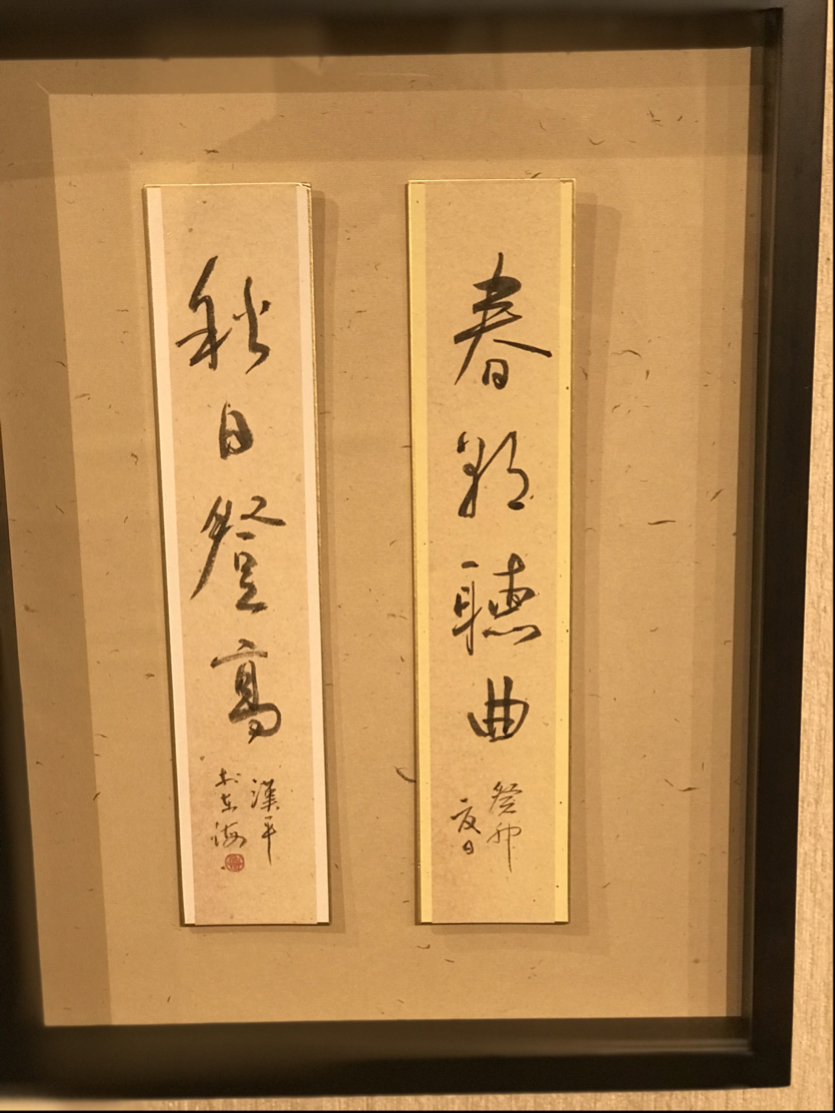 春朝聽曲
癸卯
夏日
秋日登高
漢平
於東海